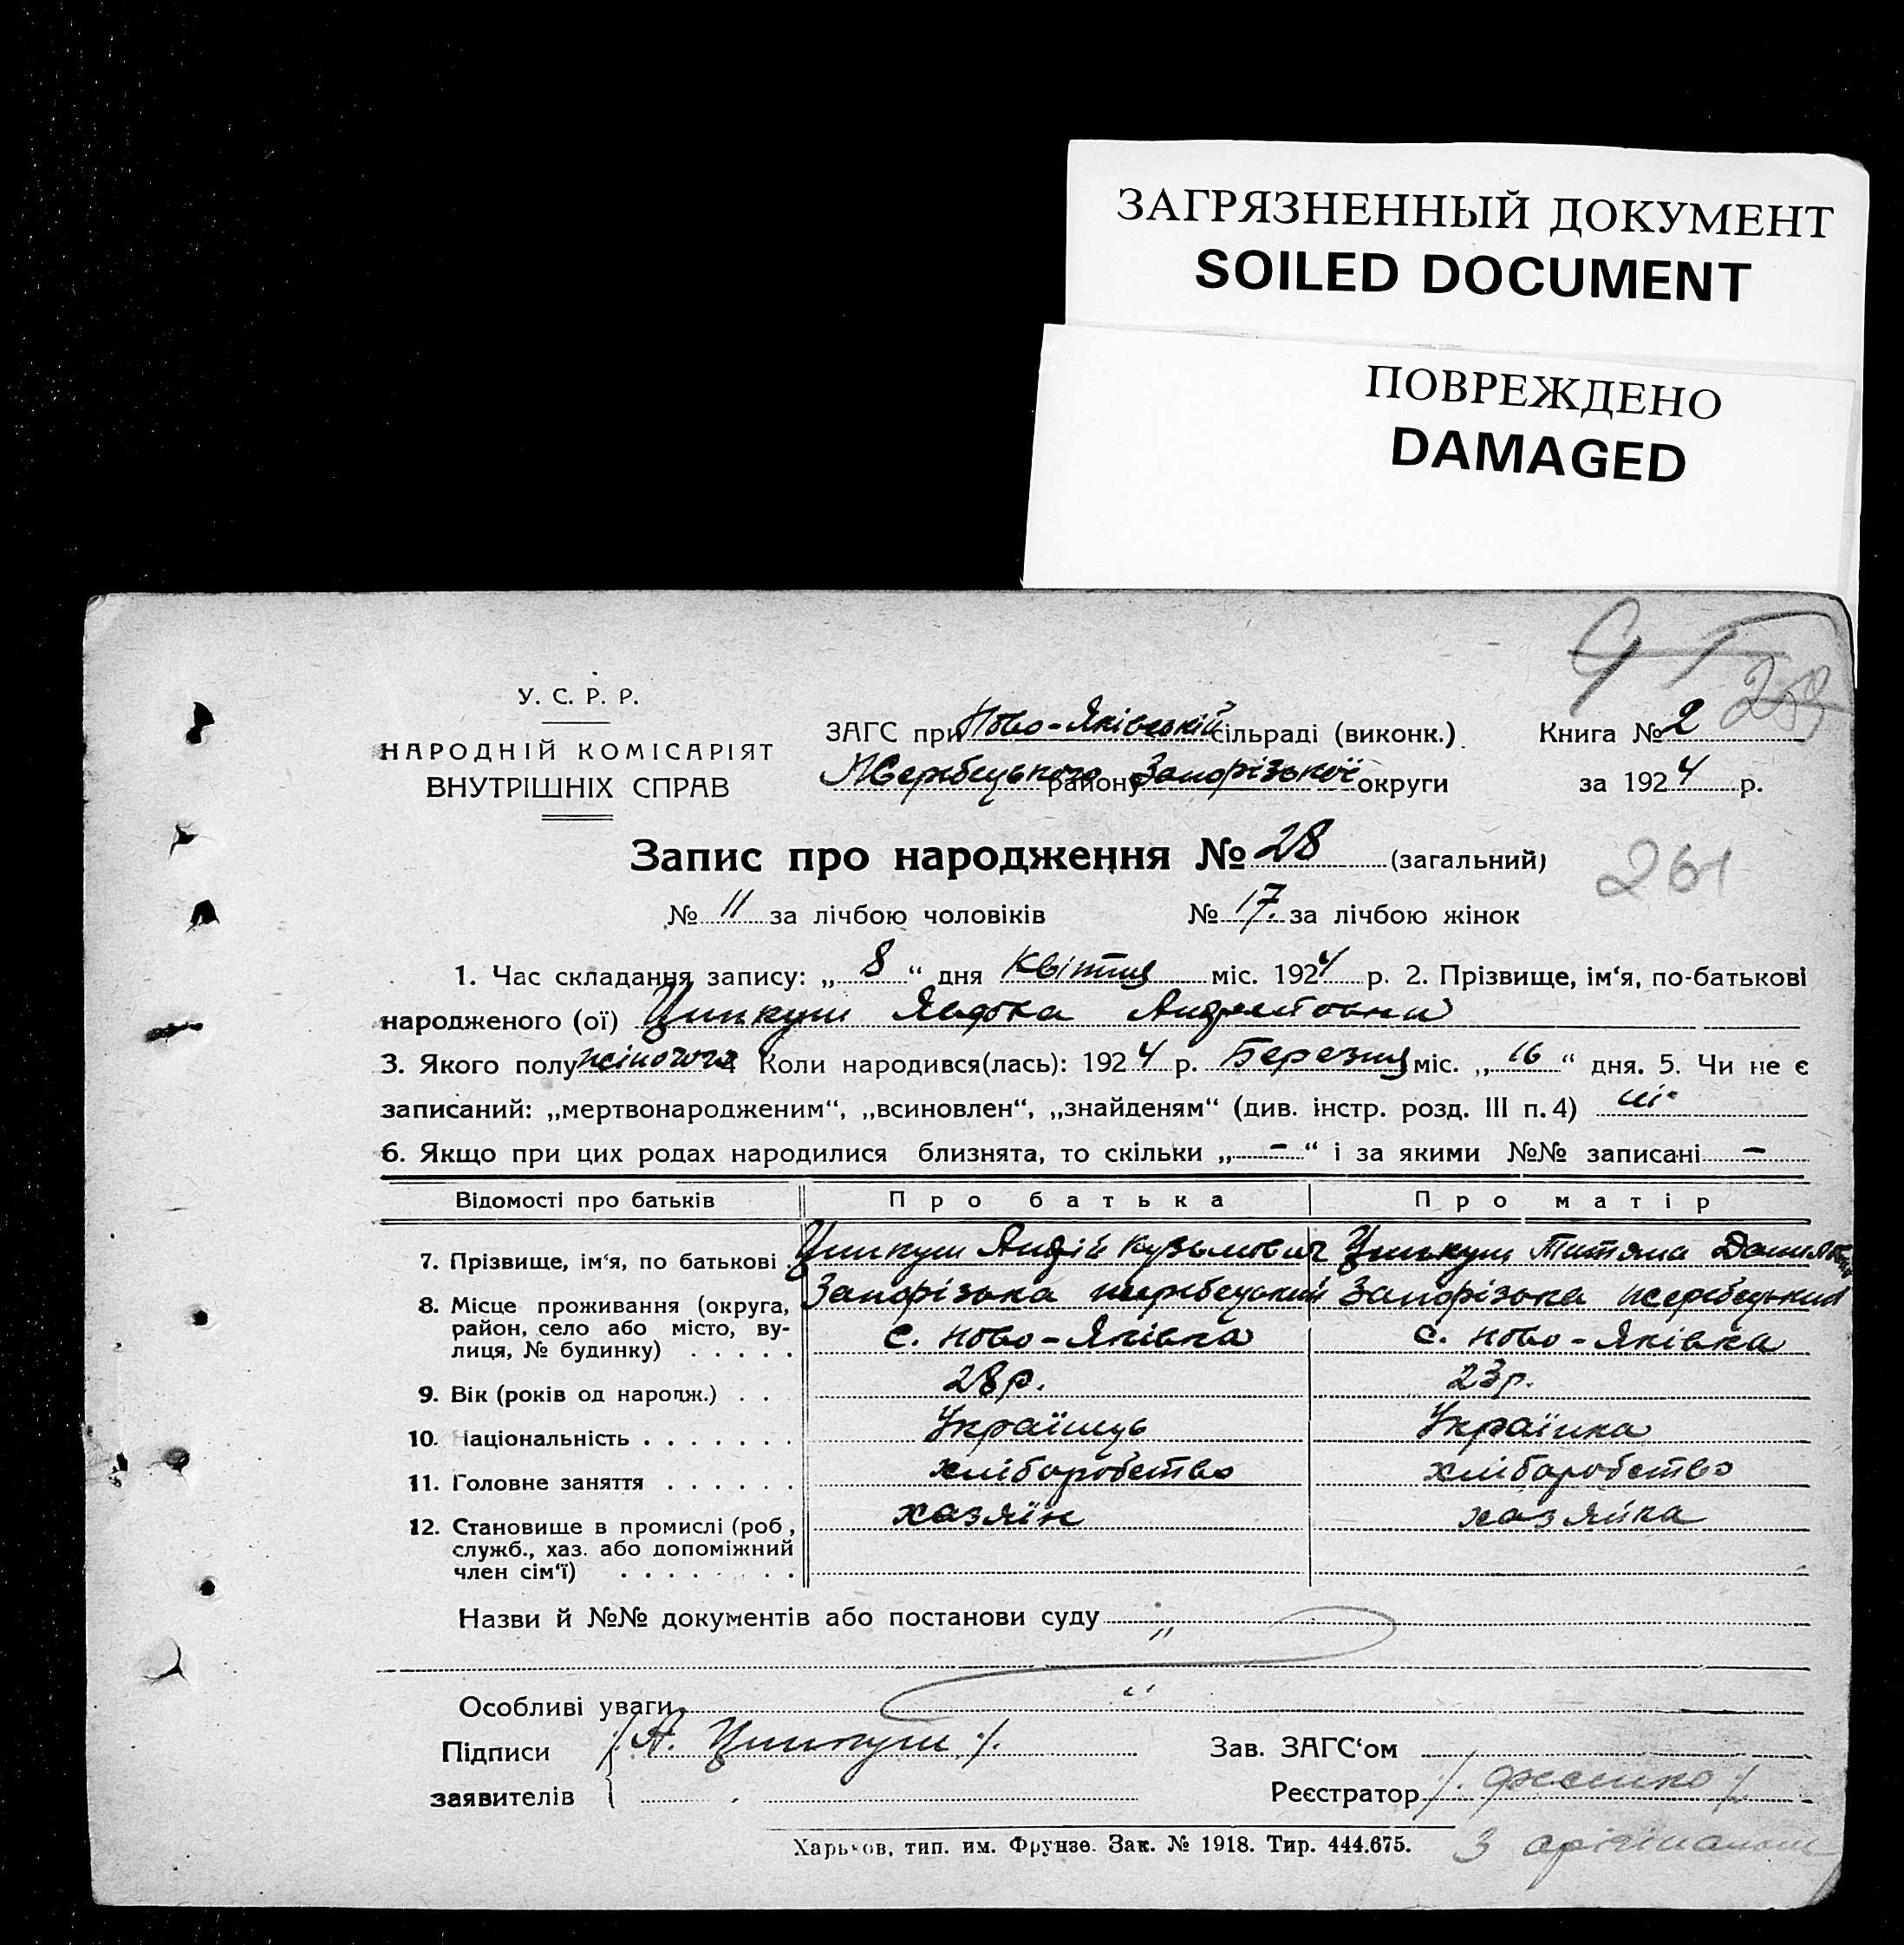 ЗАГРЯЗНЕННЫЙ ДОКУМЕНТ
SOILED DOCUMENT
ПОВРЕЖДЕНО
DAMAGED
У. С. Р. Р.
НАРОДНІЙ КОМІСАРІЯТ
ВНУТРІШНІХ СПРАВ
ЗАГС при Ново-Яківській сільраді (виконк.)
Жеребецького району Запорізької округи
Книга № 2
за 1924 р.
Запис про народження № 28 (загальний)
261
№ 11 за лічбою чоловіків № 17. за лічбою жінок
1. Час складання запису: „ 8 “ дня Квітня міс. 1924 р. 2. Прізвище, ім‘я, по-батькові
народженого (ої) Ципкуш Андреїовна
3. Якого полу жіночого 4 Коли народився(лась): 1924 р. Березня міс. „ 16 “ дня. 5. Чи не є
записаний: „мертвонародженим“, „всиновлен“, „знайденям“ (див. інстр. розд. III п. 4) ні.
6. Якщо при цих родах народилися близнята, то скільки „ - “ і за якими №№ записані -
Відомості про батьків Про батька Про матір
7. Прізвище, ім‘я, по батькові Ципкуш Андрій Кузьмович Ципкуш Титяна Даниловна
8. Місце проживання (округа, Запорізька жеребецький Запорізька жеребецький
район, село або місто, ву- с. Ново-Яківка с. Ново-Яківка
лиця, № будинку) . . . . .
9. Вік (років од народж.) . . 28 р. 23 р.
10. Національність . . . . . . . Українць Українка
11. Головне заняття . . . . . . хліборобство хліборобство
12. Становище в промислі (роб, хазяїн хазяйка
служб., хаз. або допоміжний
член сім‘ї) . . . . . . . .
Назви й №№ документів або постанови суду "
Особливі уваги "
Підписи /А. Ципкуш/. Зав. ЗАГС‘ом
заявителів Реєстратор
Харьков, тип. им. Фрунзе. Зак. № 1918. Тир. 444.675.
З орігіналом